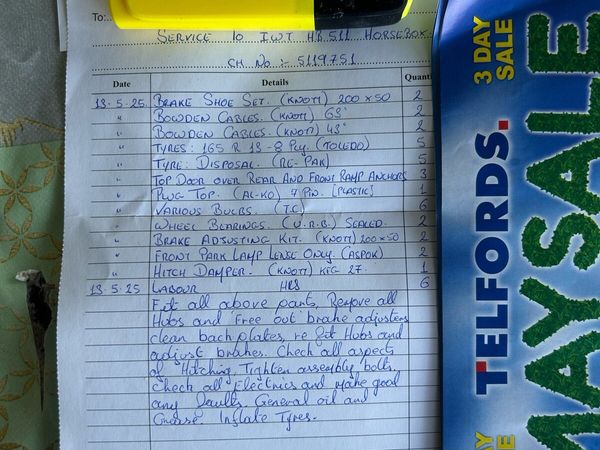 To:
SERVICE TO IWT HB511 HORSEBOX.
CH No :- 5119751
Date Details Quanti
13.5.25. BRAKE SHOE SET. (KNOTT) 200 x 50 2
" BOWDEN CABLES. (KNOTT) 63" 2
" BOWDEN CABLES. (KNOTT) 43" 2
" TYRES: 165 R 13 - 8 PLY. (TOLEDO) 5
" TYRE: DISPOSAL. (RE-PAK) 5
" TOP DOOR OVER REAR AND FRONT RAMP ANCHORS 3
" PLUG TOP. (AL-KO) 7 PIN. [PLASTIC] 1
" VARIOUS BULBS. (T.C) 6
" WHEEL BEARINGS. (U.R.B.) SEALED. 2
" BRAKE ADJUSTING KIT. (KNOTT) 200 x 50 2
" FRONT PARK LAMP LENSE ONLY. (ASPOK) 2
" HITCH DAMPER. (KNOTT) KFG 27. 1
13.5.25 LABOUR HRS 6
Fit all above parts, Remove all
Hubs and Free out brake adjusters
clean back plates, re fit Hubs and
adjust brakes. Check all aspects
of Hitching, Tighten assembly bolts.
Check all Electrics and make good
any faults. General oil and
Grease. Inflate Tyres.
3 DAY
SALE
TELFORDS.
MAY SALE